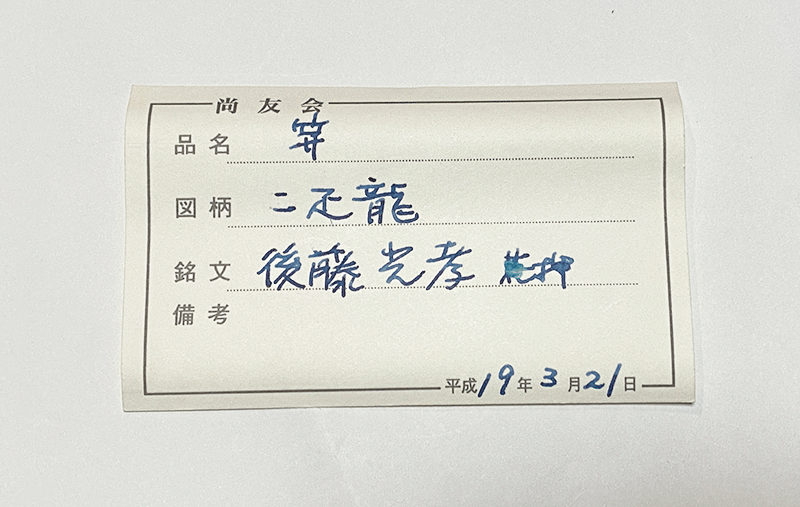 尚友会
品名 笄
図柄 二疋龍
銘文 後藤光孝 花押
備考
平成19年3月21日